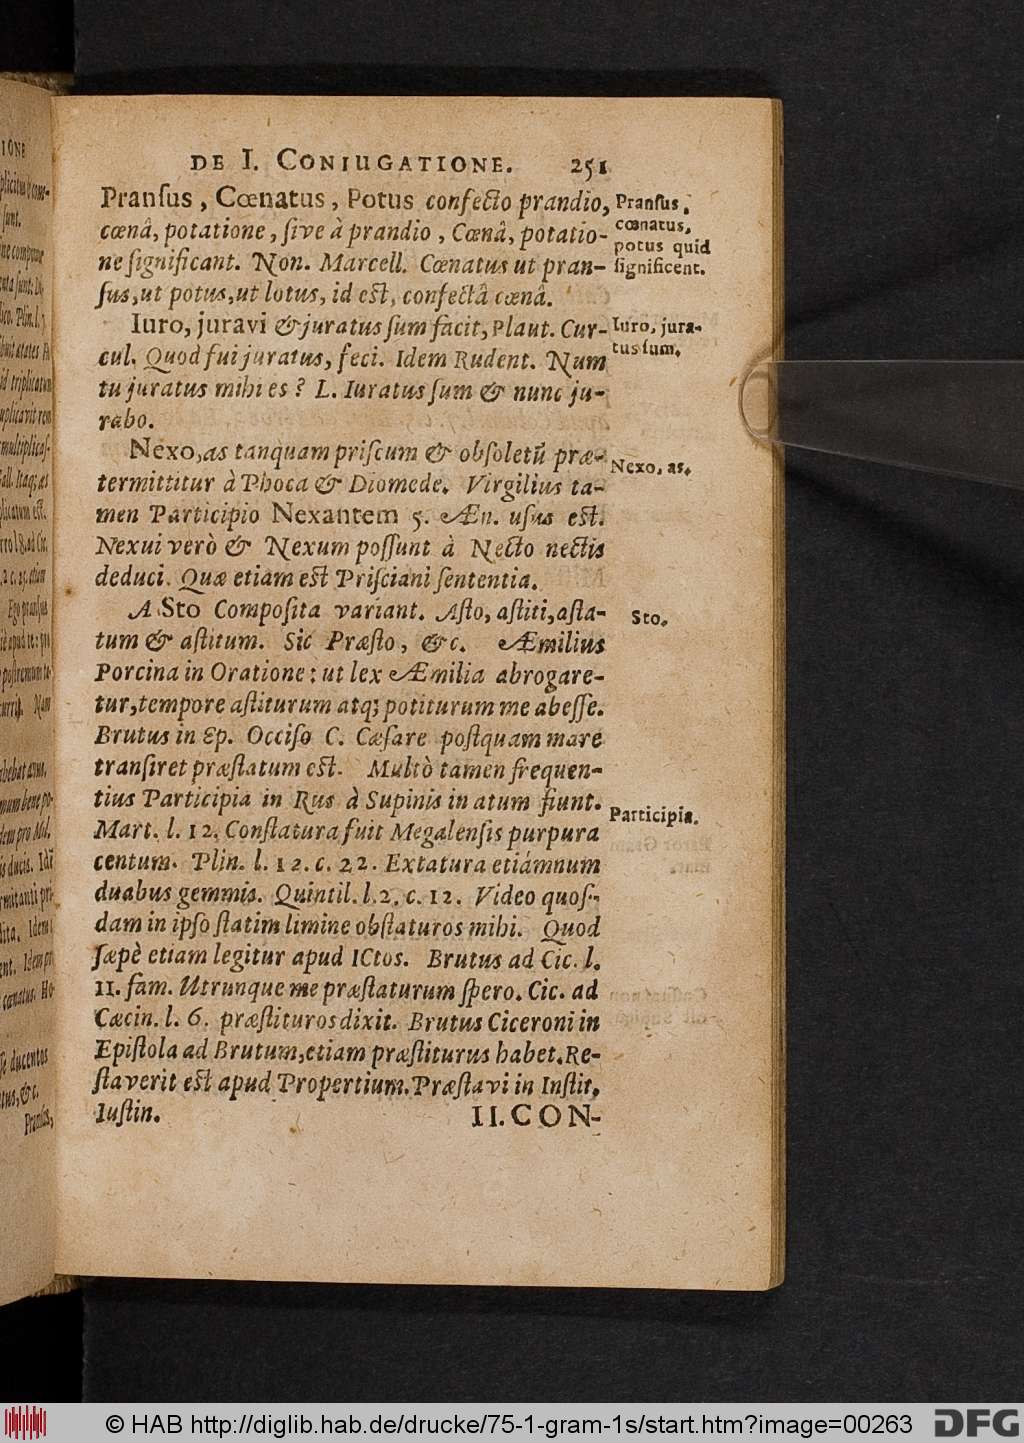 DE I. CONIUGATIONE. 251
Pranſus, Cœnatus, Potus confecto prandio,
cœnâ, potatione, ſive à prandio, Cœnâ, potatio-
ne ſignificant. Non. Marcell. Cœnatus ut pran-
ſus, ut potus, ut lotus, id est, confectâ cœnâ.
Iuro, juravi & juratus ſum facit, Plaut. Cur-
cul. Quod fui juratus, feci. Idem Rudent. Num
tu juratus mihi es? L. Iuratus ſum & nunc ju-
rabo.
Nexo, as tanquam priſcum & obſoletũ præ-
termittitur à Phoca & Diomede. Virgilius ta-
men Participio Nexantem 5. Æn. uſus est.
Nexui verò & Nexum poſſunt à Necto nectis
deduci. Quæ etiam est Priſciani ſententia.
A Sto Compoſita variant. Aſto, aſtiti, aſta-
tum & aſtitum. Sic Præſto, &c. Æmilius
Porcina in Oratione: ut lex Æmilia abrogare-
tur, tempore aſtiturum atq; potiturum me abeſſe.
Brutus in Ep. Occiſo C. Cæſare poſtquam mare
tranſiret præſtatum est. Multò tamen frequen-
tius Participia in Rus à Supinis in atum fiunt.
Mart. l. 12. Conſtatura fuit Megalenſis purpura
centum. Plin. l. 12. c. 22. Extatura etiámnum
duabus gemmis. Quintil. l. 2. c. 12. Video quoſ-
dam in ipſo ſtatim limine obſtaturos mihi. Quod
ſæpè etiam legitur apud ICtos. Brutus ad Cic. l.
11. fam. Utrunque me præſtaturum ſpero. Cic. ad
Cæcin. l. 6. præſtituros dixit. Brutus Ciceroni in
Epiſtola ad Brutum, etiam præſtiturus habet. Re-
ſtaverit est apud Propertium. Præſtavi in Inſtit.
Iuſtin. II. CON-
Pranſus,
cœnatus,
potus quid
ſignificent.
Iuro, jura-
tus ſum.
Nexo, as.
Sto.
Participia.
© HAB http://diglib.hab.de/drucke/75-1-gram-1s/start.htm?image=00263
DFG